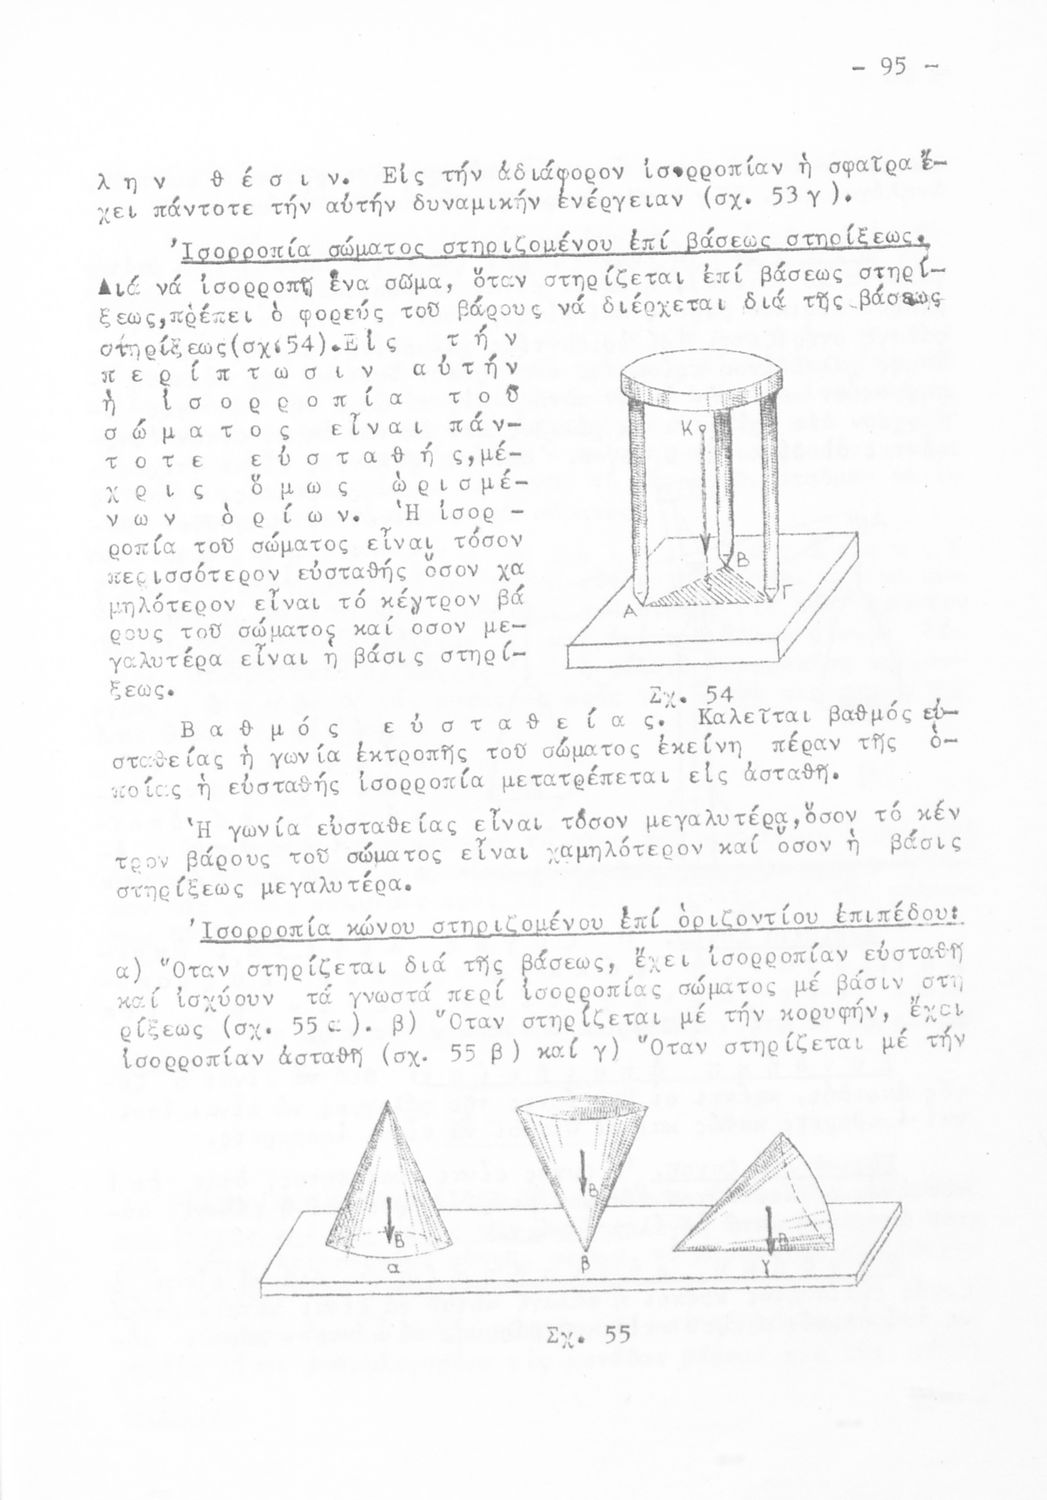 - 95 -
λ η ν θ έ σ ι ν. Εἰς τήν ἀδιάφορον ἰσορροπίαν ἡ σφαῖρα ἔ-
χει πάντοτε τήν αὐτήν δυναμικήν ἐνέργειαν (σχ. 53 γ ).
Ἰσορροπία σώματος στηριζομένου ἐπί βάσεως στηρίξεως.
Διά νά ἰσορροπῇ ἕνα σῶμα, ὅταν στηρίζεται ἐπί βάσεως στηρί-
ξεως,πρέπει ὁ φορεύς τοῦ βάρους νά διέρχεται διά τῆς βάσεως
στηρίξεως(σχ.54).Εἰς τ ή ν
π ε ρ ί π τ ω σ ι ν α ὐ τ ή ν
ἡ ἰ σ ο ρ ρ ο π ί α τ ο ῦ
σ ώ μ α τ ο ς ε ἶ ν α ι π ά ν-
τ ο τ ε ε ὐ σ τ α θ ή ς,μέ-
χ ρ ι ς ὅ μ ω ς ὡ ρ ι σ μέ-
ν ω ν ὁ ρ ί ω ν. Ἡ ἰσορ -
ροπία τοῦ σώματος εἶναι τόσον
περισσότερον εὐσταθής ὅσον χα
μηλότερον εἶναι τό κέντρον βά
ρους τοῦ σώματος καί οσον με-
γαλυτέρα εἶναι ἡ βάσις στηρί-
ξεως.
Κ
Β
Α
Γ
Σχ. 54
Β α θ μ ό ς ε ὐ σ τ α θ ε ί α ς. Καλεῖται βαθμός εὐ-
σταθείας ἡ γωνία ἐκτροπῆς τοῦ σώματος ἐκείνη πέραν τῆς ὁ-
ποίας ἡ εὐσταθής ἰσορροπία μετατρέπεται εἰς ἀσταθῆ.
Ἡ γωνία εὐσταθείας εἶναι τόσον μεγαλυτέρα,ὅσον τό κέν
τρον βάρους τοῦ σώματος εἶναι χαμηλότερον καί ὅσον ἡ βάσις
στηρίξεως μεγαλυτέρα.
Ἰσορροπία κώνου στηριζομένου ἐπί ὁριζοντίου ἐπιπέδου:
α) Ὅταν στηρίζεται διά τῆς βάσεως, ἔχει ἰσορροπίαν εὐσταθῆ
καί ἰσχύουν τά γνωστά περί ἰσορροπίας σώματος μέ βάσιν στη
ρίξεως (σχ. 55 α ). β) Ὅταν στηρίζεται μέ τήν κορυφήν, ἔχει
ἰσορροπίαν ἀσταθῆ (σχ. 55 β ) καί γ) Ὅταν στηρίζεται μέ τήν
Β
Β
Β
α
β
γ
Σχ. 55